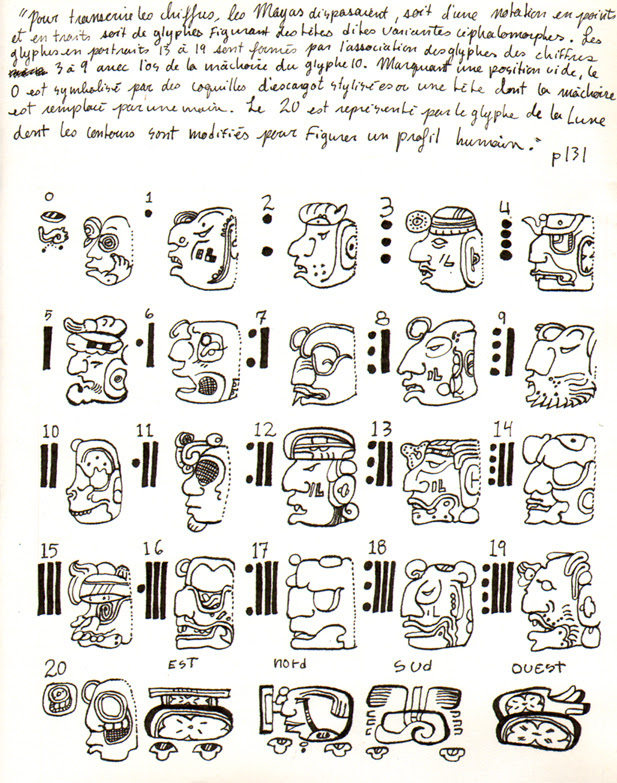 "Pour transcrire les chiffres, les Mayas disposaient, soit d'une notation en points
et en traits soit de glyphes figurant des têtes dites variantes céphalomorphes. Les
glyphes en portraits 13 à 19 sont formés par l'association des glyphes des chiffres
3 à 9 avec l'os de la mâchoire du glyphe 10. Marquant une position vide, le
0 est symbolisé par des coquilles d'escargot stylisées ou une tête dont la mâchoire
est remplacé par une main. Le 20 est représenté par le glyphe de la Lune
dont les contours sont modifiés pour figurer un profil humain."
p131
0 1 2 3 4
5 6 7 8 9
10 11 12 13 14
15 16 17 18 19
20 EST nord SUD OUEST